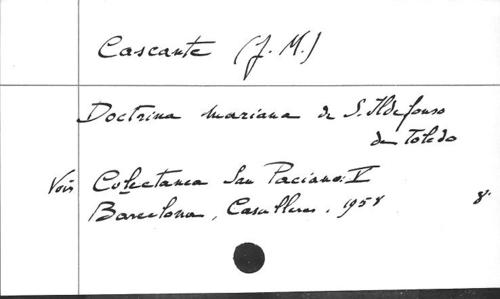 Cascante (J. M.)
Doctrina mariana de S. Ildefonso
de Toledo
Voir Colectanea San Paciano. V
Barcelona, Casulleras, 1958 8°